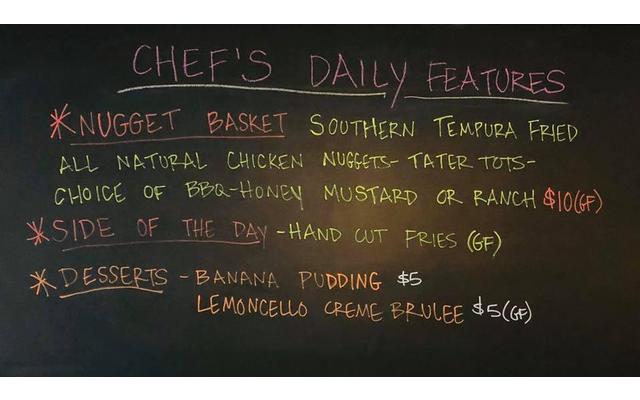 CHEF'S DAILY FEATURES
*NUGGET BASKET SOUTHERN TEMPURA FRIED
ALL NATURAL CHICKEN NUGGETS- TATER TOTS-
CHOICE OF BBQ-HONEY MUSTARD OR RANCH $10(GF)
*SIDE OF THE DAY -HAND CUT FRIES (GF)
*DESSERTS - BANANA PUDDING $5
LEMONCELLO CREME BRULEE $5(GF)